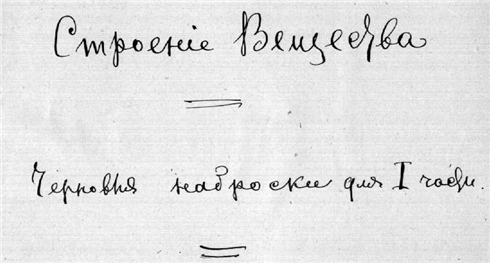 Строеніе Вещества
Черновыя наброски для I части.